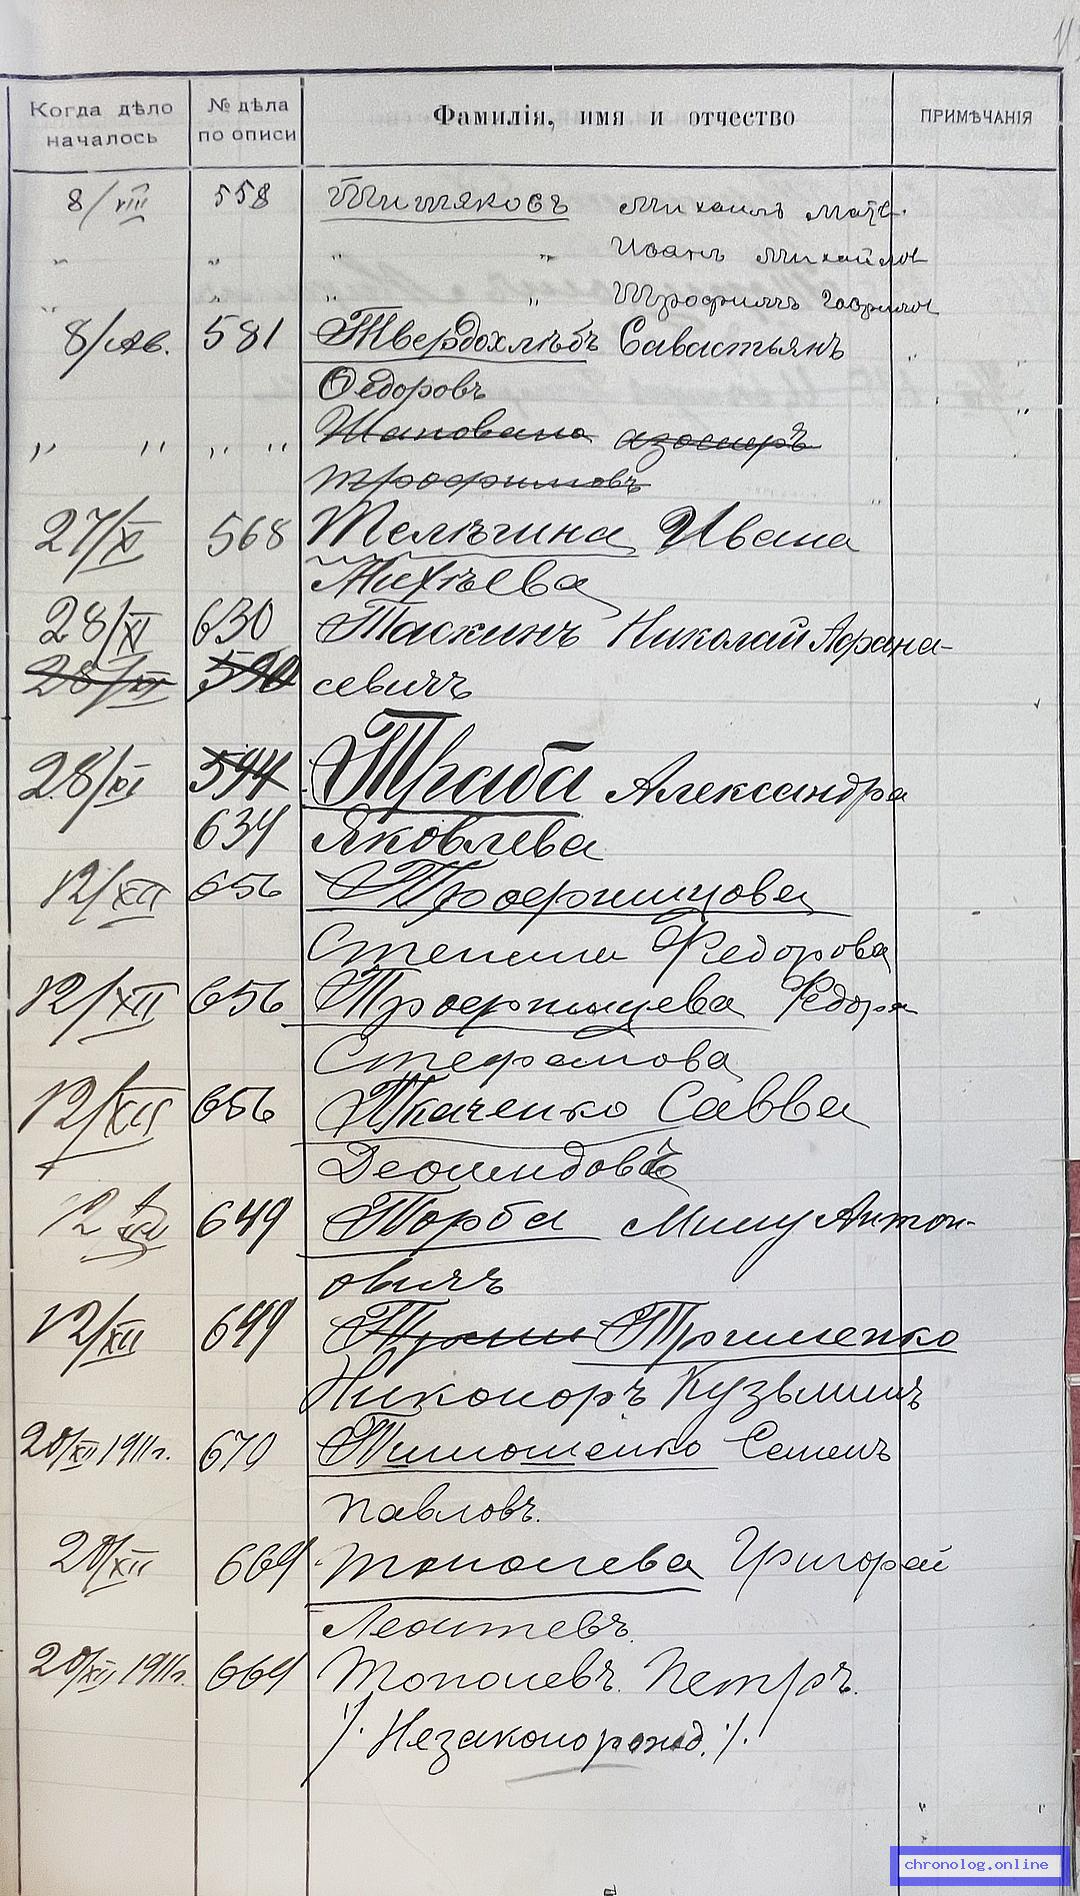 Когда дѣло началось № дѣла по описи Фамилія, имя и отчество ПРИМѢЧАНІЯ
8/VIII 558 Тишяковъ Михаилъ Матв.
„ „ „ „ Иванъ Михайлов
„ „ Трофимъ Гаврилов
8/Ав. 581 Твердохлѣбъ Савастьянъ
Ѳедоровъ
„ „ „ „ Шаповала
Трофимовъ
27/XI 568 Телѣгина Ивана
Михѣева
28/XI 630 Таскинъ Николай Афана-
28/XI 590 севичъ
28/XI 594 Траба Александра
634 Яковлева
12/XII 656 Трофимцова
Степана Федорова
12/XII 656 Трофимцева Федора
Стефанова
12/XII 656 Ткаченко Савва
12 XII 649 Торба Мину Антон-
овичъ
12/XII 649 Тримненко
Никоноръ Кузьминъ
20/XII 1911г. 670 Тимошенко Семенъ
Павловъ.
20/XII 669 Тополева Григорай
Леонтевъ.
20/XII 1911г. 669 Тополевъ. Петръ.
/. Незаконорожд. /.
chronolog.online